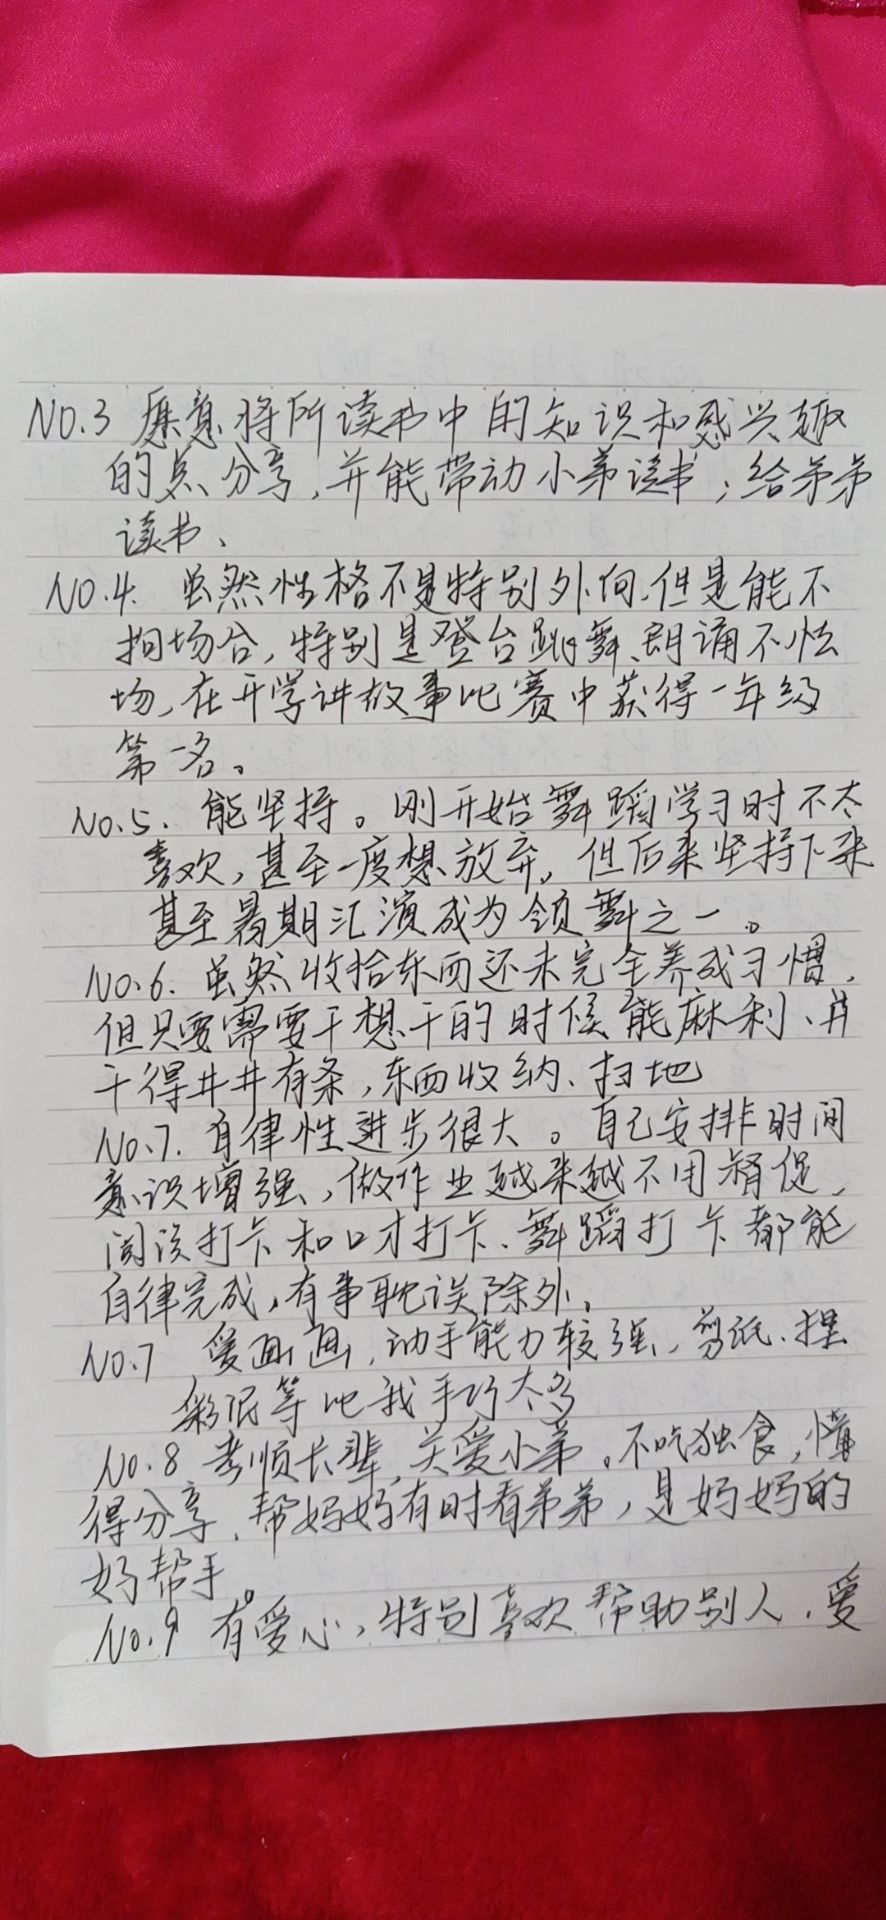 No.3 愿意将所读书中的知识和感兴趣
的点分享,并能带动小弟读书,给弟弟
读书、
No.4. 虽然性格不是特别外向.但是能不
拘场合,特别是登台跳舞、朗诵不怯
场,在开学讲故事比赛中获得一年级
第一名。
No.5. 能坚持。刚开始舞蹈学习时不太
喜欢,甚至一度想放弃,但后来坚持下来
甚至暑期汇演成为领舞之一。
No.6. 虽然收拾东西还未完全养成习惯,
但只要需要干想干的时候能麻利、并
干得井井有条,东西收纳、扫地
No.7. 自律性进步很大。自己安排时间
意识增强,做作业越来越不用督促,
阅读打卡和口才打卡、舞蹈打卡都能
自律完成,有事耽误除外,
No.7 爱画画,动手能力较强,剪纸、捏
彩泥等比我手巧太多
No.8 孝顺长辈,关爱小弟。不吃独食,懂
得分享、帮妈妈有时看弟弟,是妈妈的
好帮手。
No.9 有爱心,特别喜欢帮助别人.爱